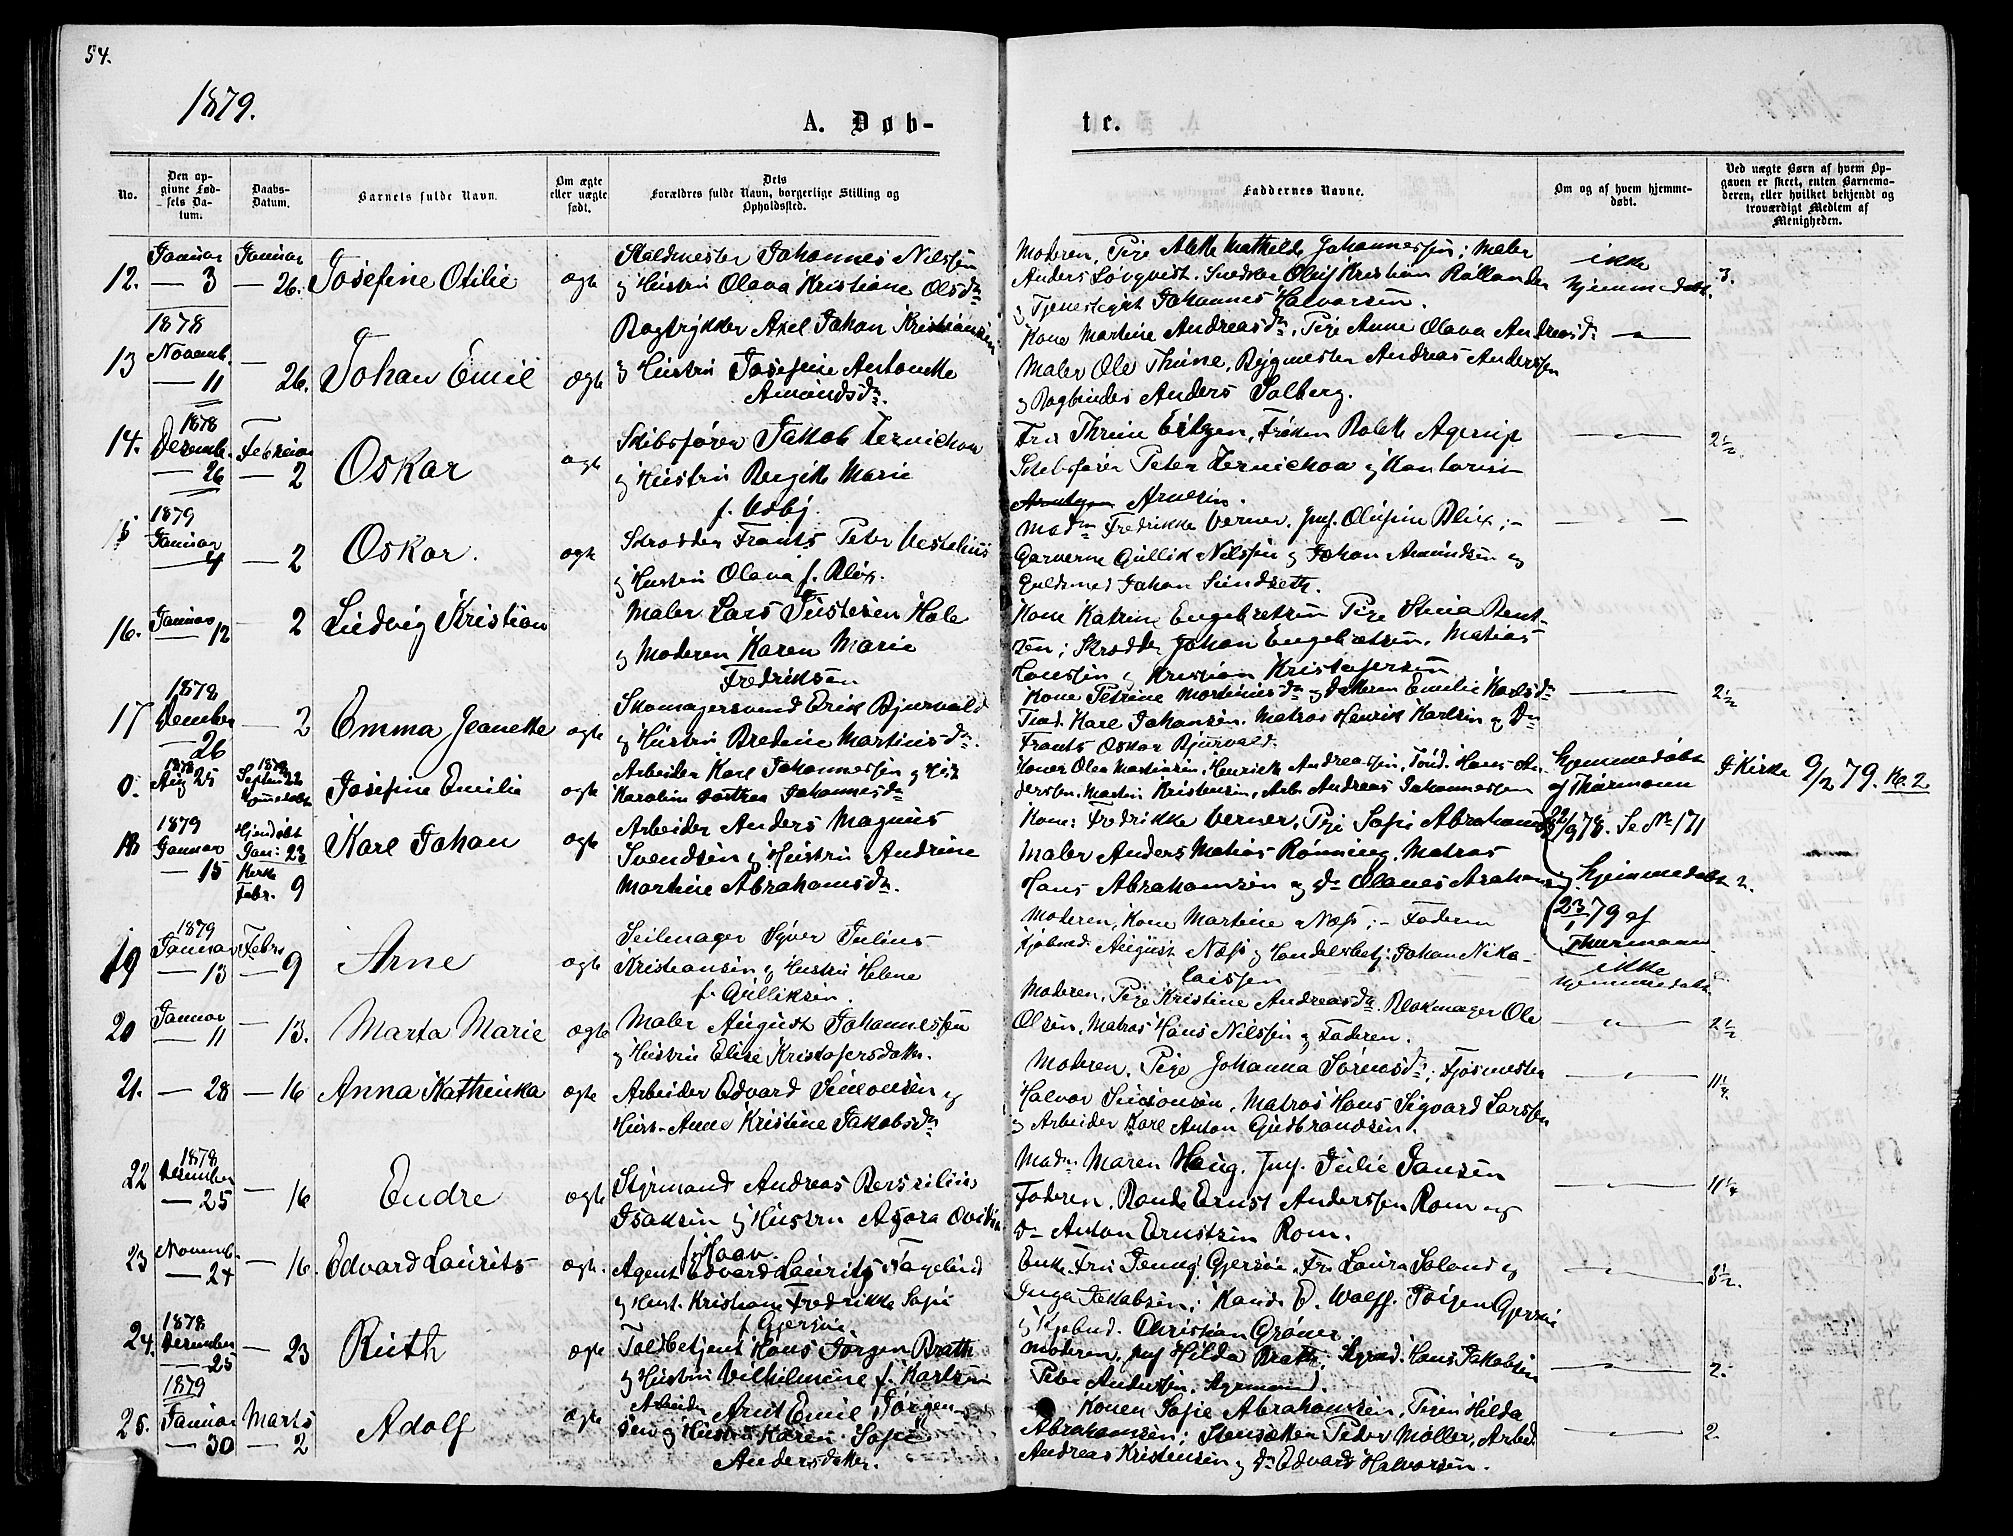 54.
1879.
A. Døb-
te.
No.
Den op-
givne Fød-
sels Da-
tum.
Daabs-
Datum.
Barnets fulde Navn.
Om ægte
eller uægte
født.
Dets
Forældres fulde Navn, borgerlige Stilling og
Opholdssted.
Faddernes Navne.
Om og af hvem hjemme-
døbt.
Ved uægte Børn af hvem Op-
gaven er skeet, enten Barnemo-
deren, eller hvilket bekjendt og
troværdigt Medlem af
Menigheden.
12.
Januar
— 3
Januar
— 26.
Josefine Otilie
ægte
Staldmester Johannes Nilssen
og Hustru Olava Kristiane Olsdr
Moderen, Pige Alette Mathilde Johannessen; Maler
Anders Lövqvist. Snedker Oluf Kristian
og Tjenestegut Johannes Halvorsen.
ikke
hjemmedøbt.
3.
13
1878
Novemb.
— 11
— 26.
Johan Emil
ægte
Bogtrykker Axel Johan Kristiansen
og Hustru Josefine Antonette
Amundsdr.
Kone Martine Andreasdr, Pige Anne Olava Andreasdr
Maler Ole Thune, Bygmester Andreas Anderssen
og Bogbinder Anders Solberg.
14.
1878
Desemb.
— 26
Februar
— 2
Oskar
ægte
Skibsfører Jakob Zernichow
og Hustru Bergitte Marie
f. Udbj.
Fru Thrine Eitzen, Frøken Bolette Agerup
Skibsfører Peter Zernichow og Kontorist
Arnesen.
2½.
15
1879
Januar
— 4
— 2
Oskar.
ægte
Skrædder Frants Peter Vestelius
og Hustru Olava f. Blix.
Madm Fredrikke Verner. Jmf. Olufine Blix; —
Garverne Gullik Nilssen og Johan Amundsen og
Guldsmed Johan Sundseth.
16.
Januar
— 12
— 2
Ludvig Kristian
Maler Lars Justesen Hole
og Moderen Karen Marie
Fredriksen
Kone Katrine Engebretsen Pige Stina Bent-
zen; Skrædder Johan Engebretsen. Matias
Hansen og Kristian Kristofersen
17
1878
Desember
— 26
— 2
Emma Jeanette
ægte
Skomagersvend Erik Bjurvald
og Hustru Bredine Martinusdr.
Kone Petrine Martinusdr og Datteren Emilie Karlsdr
Tjad. Karl Johansen. Matros Henrik Karlsen og Dr
Frants Oskar Bjurvald.
2½
0.
1878
Aug 25
1878
Septem 22
hjemmedøbt
Josefine Emilie
ægte
Arbeider Karl Johannessen og Hust
Karoline Dortea Johannesdr
Koner Olea Martinsen, Henriette Andreassen, Tønd. Hans An-
derssen. Martin Kristensen, Arb. Andreas Johannessen
hjemmedøbt
af Thurmann
22/9 78. Se No 171
I Kirke 9/2 79. Kl. 2
18
1879
Januar
— 15
Hjemdøbt
Jan: 23
Kirke
Febr. 9
Karl Johan
ægte
Arbeider Anders Magnus
Svendsen og Hustru Andrine
Martine Abrahamsdr.
Kone: Fredrikke Verner, Pige Sofie Abrahams
Maler Anders Matias Rønning, Matros
Hans Abrahamsen og Dr Olanes Abraham
hjemmedøbt
23/1 79 af
Thurmann
2.
19
1879
Januar
— 13
Febr
— 9
Arne
ægte
Seilmager Syver Julius
Kristiansen og Hustru Helene
f. Gulliksen.
Moderen, Kone Martine Næss; — Faderen
Kjøbmd. August Næss og Handelsbetj: Johan Niko-
laissen
ikke
hjemmedøbt
20
Januar
— 11
— 13.
Marta Marie
ægte
Maler August Johannessen
og Hustru Elise Kristofersdatter.
Moderen, Pige Kristine Andreasdr. Blokmager Ole
Olsen, Matros Hans Nilssen og Faderen.
2½
21.
— 28
— 16
Anna Kathinka
ægte
Arbeider Edvard Simonsen og
Hust. Anne Kristine Jakobsdr
Moderen, Pige Johanna Sørensdr; Fjøsmester
Halvor Simonsen, Matros Hans Sigvard Larssen
og Arbeider Karl Anton Gudbrandsen.
22
1878
Desember
— 25
— 16
Endre
ægte
Styrmand Andreas Bersvilius
Isaksen og Hustru Aasora Ovidia
f. Haav.
Madm. Maren Haug. Jmf. Julie Jansen
Faderen. Bonde Ernst Anderssen Rom og
Dr Anton Ernstsen Rom.
23
Novemb.
— 24
— 16.
Edvard Laurits
ægte.
Agent Edvard Laurits Fagelund
og Hust. Kristiane Fredrikke Sofie
f. Gjersøe.
Enke Fru Jenny Gjersøe, Fru Laura Solend og
Inga Jakobsen; Kand. E. Wolff. Jørgen Gjersøe
og Kjøbmd. Christian Grøner.
3½.
24.
1878
Desember
— 25
— 23
Ruth
ægte
Toldbetjent Hans Jørgen Brath
og Hustru Vilhelmine f. Karlsen
Moderen, Jmf Hilda Brath. Styrmd. Hans Jakobsen
Peter Andersen, Styrmand.
2.
25.
1879
Januar
— 30
Marts
— 2
Adolf
ægte
Arbeider Arnt Emil Jørgen-
sen og Hustru Karen Sofie
Andersdatter.
Konen Sofie Abrahamsen, Pigen Hilda
Abrahamsen; Peder Møller, Arbed.
Andreas Kristensen og Dr Edvard Halvorsen.
2